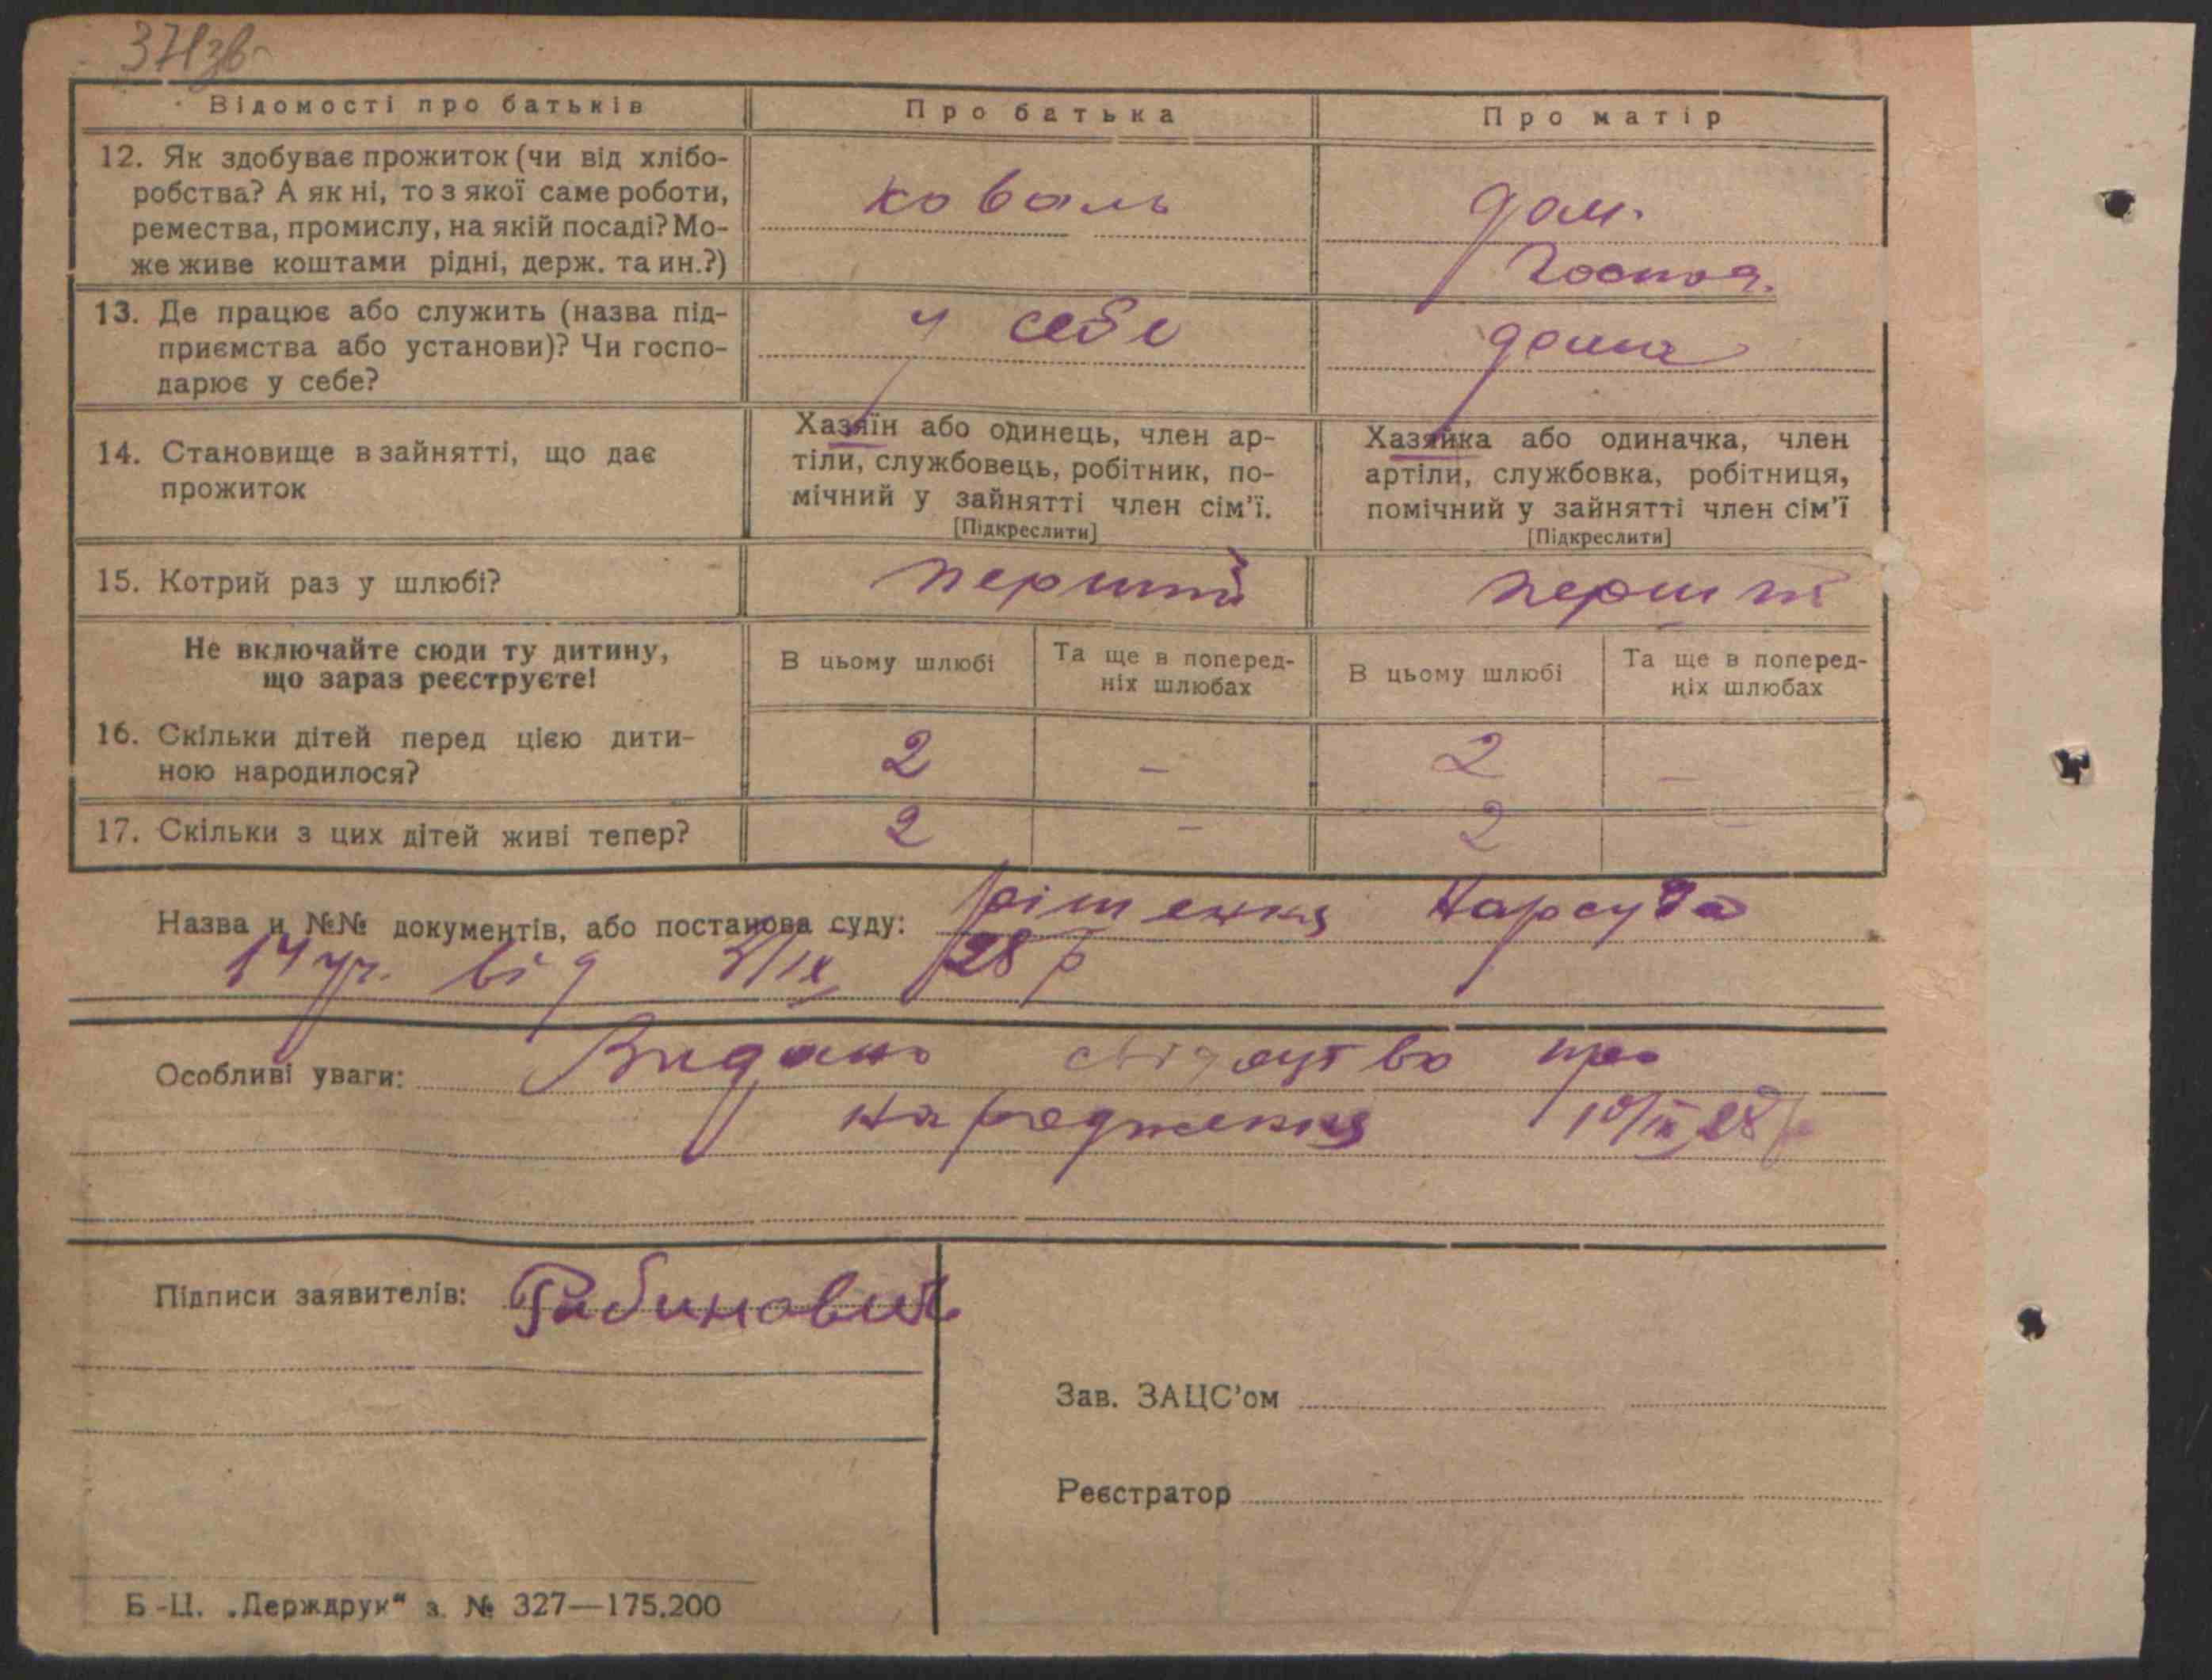 371зв
Відомості про батьків
Про батька
Про матір
12. Як здобуває прожиток (чи від хлібо-
робства? А як ні, то з якої саме роботи,
ремества, промислу, на якій посаді? Мо-
же живе коштами рідні, держ. та ин.?)
коваль
дом.
господ.
13. Де працює або служить (назва під-
приємства або установи)? Чи госпо-
дарює у себе?
у себе
дома
14. Становище в зайнятті, що дає
прожиток
Хазяїн або одинець, член ар-
тіли, службовець, робітник, по-
мічний у зайнятті член сім'ї.
[Підкреслити]
Хазяйка або одиначка, член
артіли, службовка, робітниця,
помічний у зайнятті член сім'ї
[Підкреслити]
15. Котрий раз у шлюбі?
перший
перший
Не включайте сюди ту дитину,
що зараз реєструєте!
В цьому шлюбі
Та ще в поперед-
ніх шлюбах
В цьому шлюбі
Та ще в поперед-
ніх шлюбах
16. Скільки дітей перед цією дити-
ною народилося?
2 – 2 –
17. Скільки з цих дітей живі тепер?
2 – 2 –
Назва и №№ документів, або постанова суду: рішення Нарсуда
14 уч. від /IX 28 р
Особливі уваги: Видано свідоцтво про
народження 28 р
Підписи заявителів: Рабинович
Зав. ЗАЦС'ом
Реєстратор
Б-Ц. „Держдрук“ з. № 327—175.200